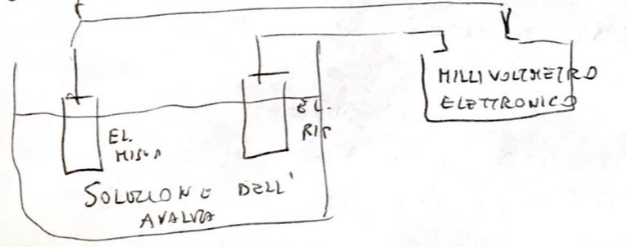 MILLIVOLTMETRO
ELETTRONICO
EL.
MISUR
EL.
RIF
SOLUZIONE DELL'